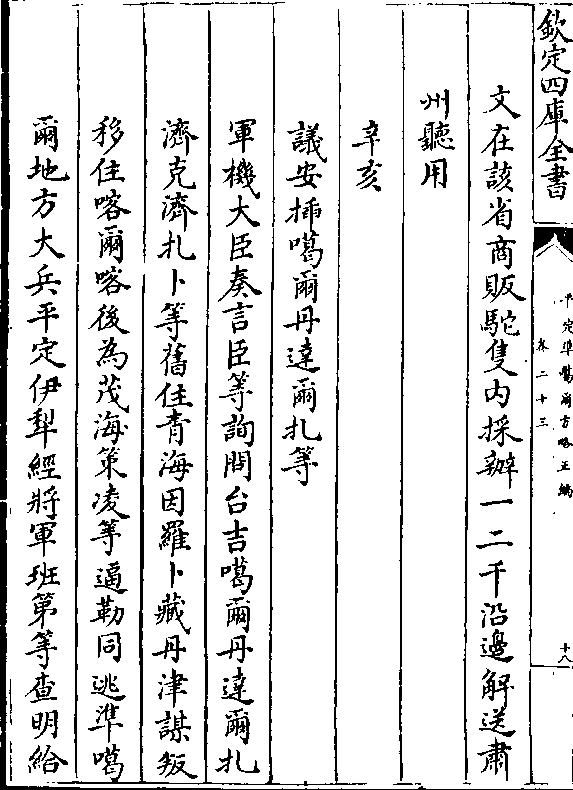 欽定四庫全書
平定準噶爾方略正編
卷二十三
十八
文在該省商販駝隻內採辦一二千沿邊解送肅
州聽用
辛亥
議安插噶爾丹達爾扎等
軍機大臣奏言臣等詢問台吉噶爾丹達爾扎
濟克濟扎卜等舊住青海因羅卜藏丹津謀叛
移住喀爾喀後為茂海策凌等逼勒同逃準噶
爾地方大兵平定伊犁經將軍班第等查明給